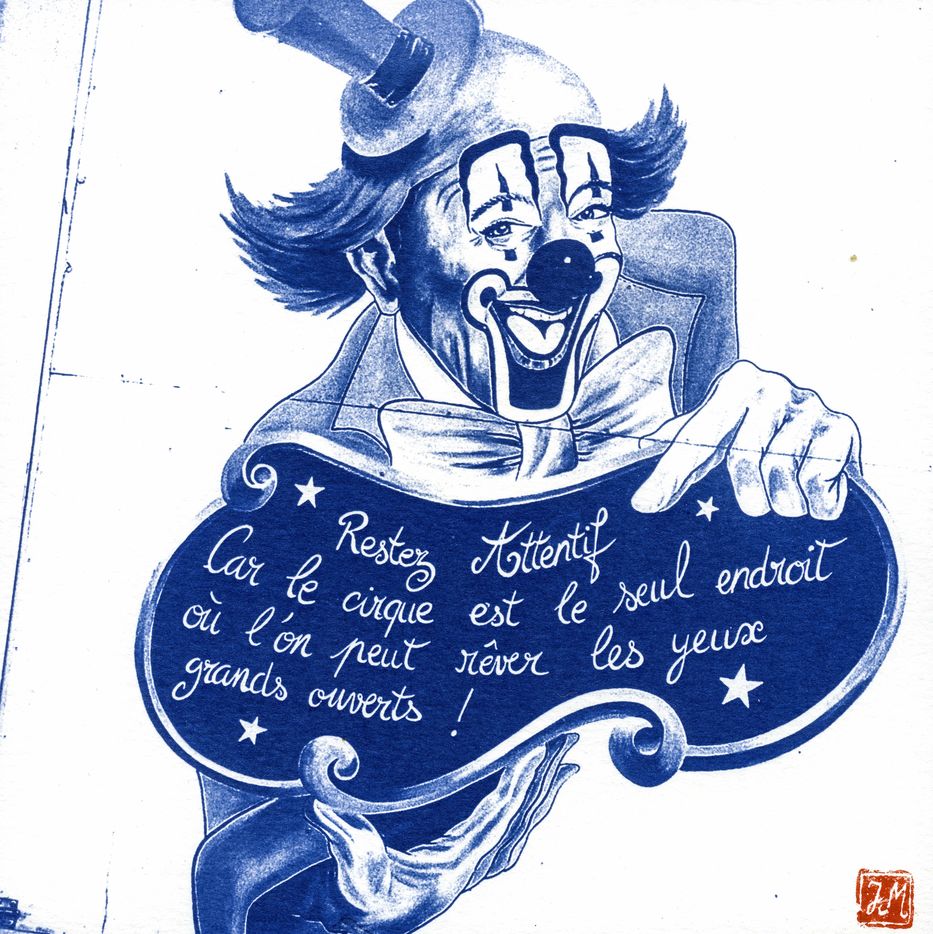 Restez Attentif
Car le cirque est le seul endroit
où l'on peut rêver les yeux
grands ouverts !
JCM